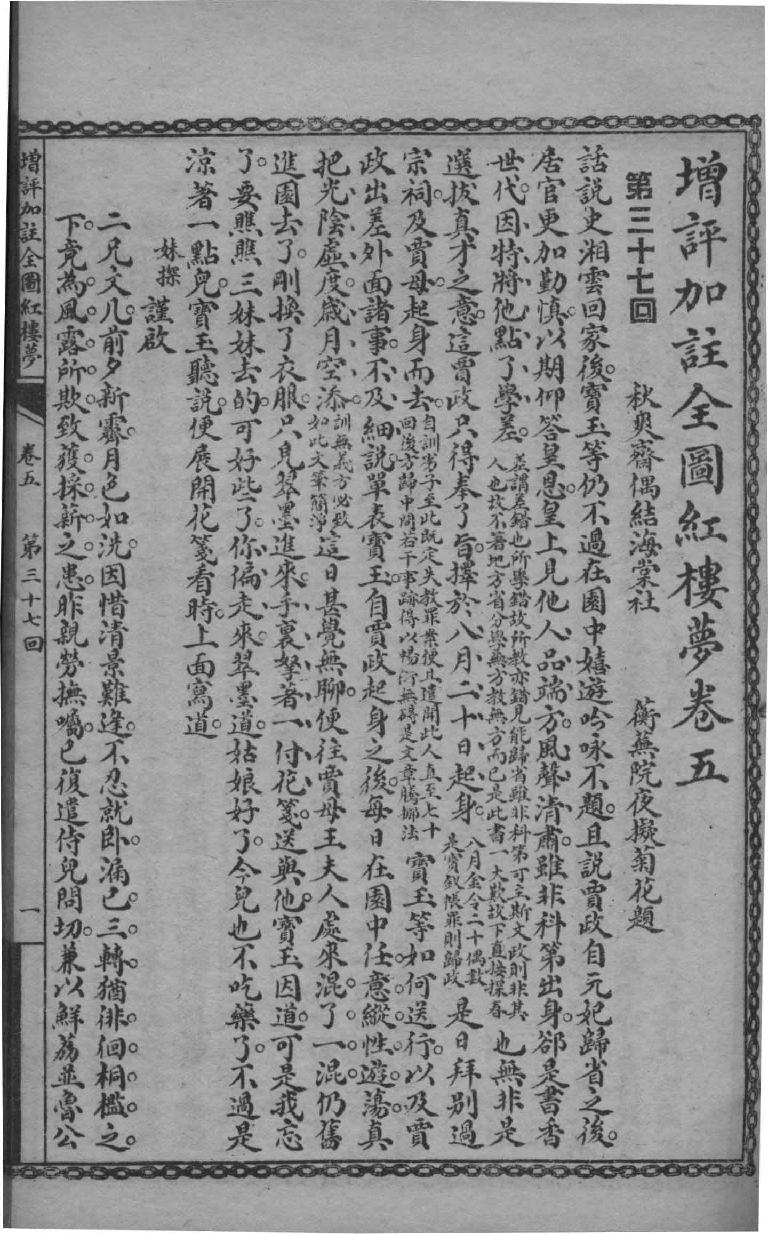 增評加註全圖紅樓夢卷五
第三十七回　秋爽齋偶結海棠社　蘅蕪院夜擬菊花題
話說史湘雲回家後。寶玉等仍不過在園中嬉遊吟咏不題。且說賈政自元妃歸省之後。
居官更加勤慎。以期仰答皇恩。皇上見他人品端方。風聲清肅。雖非科第出身。郤是書香
世代。因特將他點了學差。差謂差錯也所學錯故所教亦錯見能歸省雖非科第可主斯文政則非其人也故不著地方省分學無方教無方而已是此書一大欵故下直接探春也無非是
選拔真才之意。這賈政只得奉了旨。擇於八月二十日起身。八月金令二十偶數是寶釵帳罪則歸政是日拜別過
宗祠及賈母。起身而去。自訓劣子至此既定失教罪案便且遣開此人直至七十回後方歸中間若干事蹟得以暢行無碍是文章騰挪法寶玉等如何送行。以及賈
政出差外面諸事。不及細說。單表寶玉自賈政起身之後。每日在園中任意縱性遊蕩。真
把光陰虛度。歲月空添。訓無義方必致如此文筆簡淨這日甚覺無聊。便往賈母王夫人處來混了一混。仍舊
進園去了。剛換了衣服。只見翠墨進來。手裏拏著一付花箋。送與他。寶玉因道。可是我忘
了。要瞧瞧三妹妹去的。可好些了。你偏走來。翠墨道。姑娘好了。今兒也不吃藥了。不過是
涼著一點兒。寶玉聽說。便展開花箋看時。上面寫道。
妹探謹啟
二兄文几。前夕新霽。月色如洗。因惜清景難逢。不忍就卧。漏已三轉。猶徘徊桐檻之
下。竟為風露所欺。致獲採薪之患。昨親勞撫囑。已復遣侍兒問切。兼以鮮荔並魯公
增評加註全圖紅樓夢　卷五　第三十七回　一